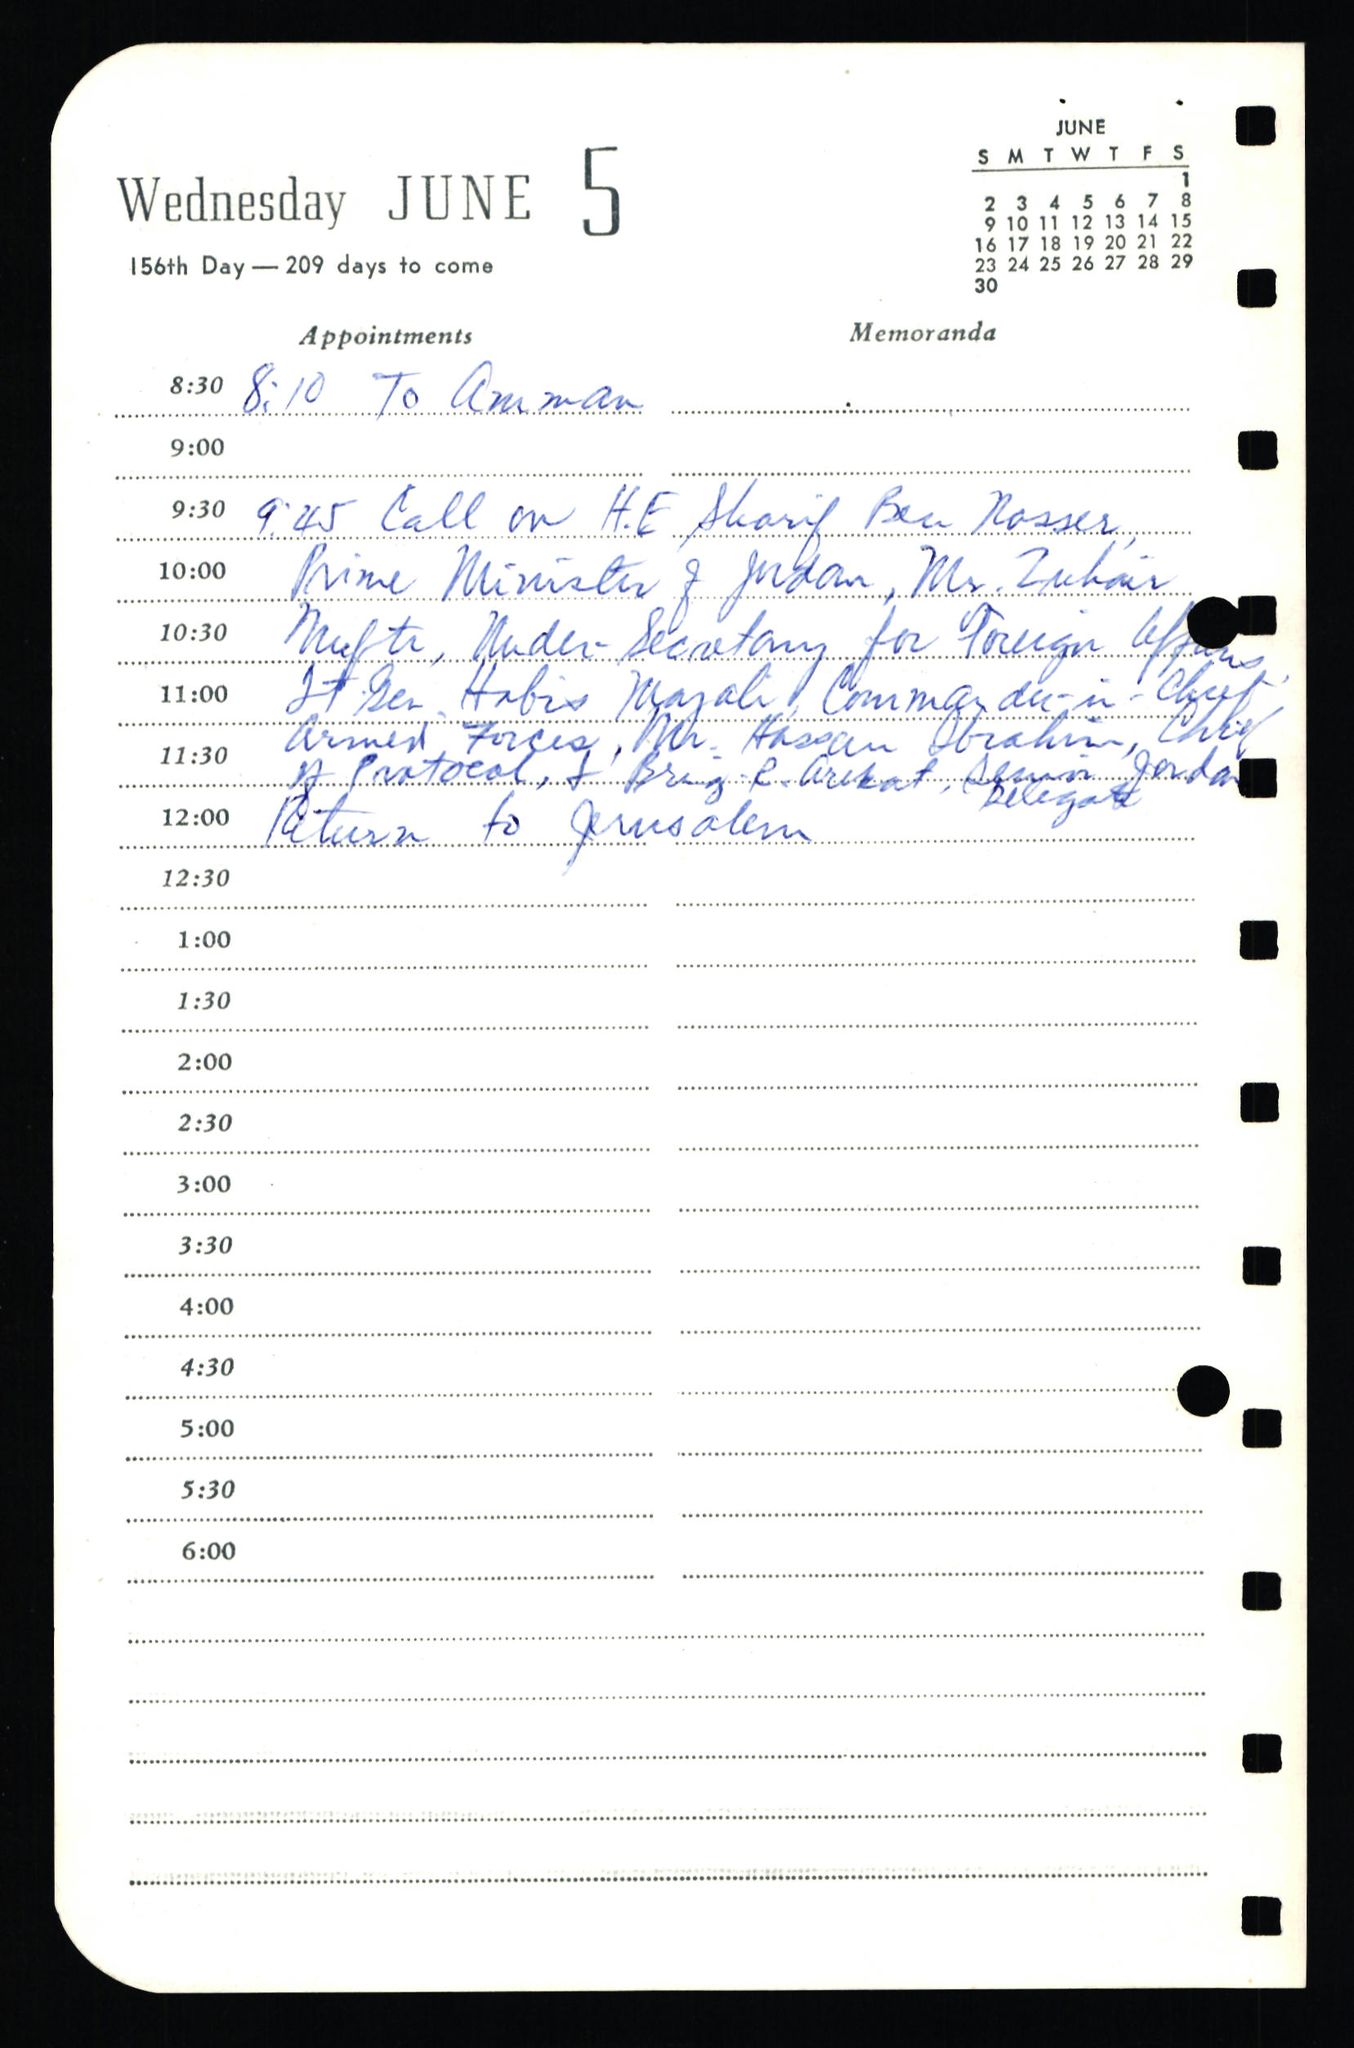 Wednesday JUNE 5
156th Day — 209 days to come
JUNE
S M T W T F S
1
2 3 4 5 6 7 8
9 10 11 12 13 14 15
16 17 18 19 20 21 22
23 24 25 26 27 28 29
30
Appointments Memoranda
8:30 8:10 To Amman
9:00
9:30 9:45 Call on H.E Sharif Ben Nasser,
10:00 Prime Minister of Jordan, Mr. Zuhair
10:30 Mufti, Under-Secretary for Foreign Affairs,
11:00 Lt Gen. Habis Majali, Commander-in-Chief
Armed Forces, Mr. Hassan Ibrahim, Chief
11:30 of Protocol, & Brig R. Arekat, Senior Jordan
Delegate
12:00 Return to Jerusalem
12:30
1:00
1:30
2:00
2:30
3:00
3:30
4:00
4:30
5:00
5:30
6:00